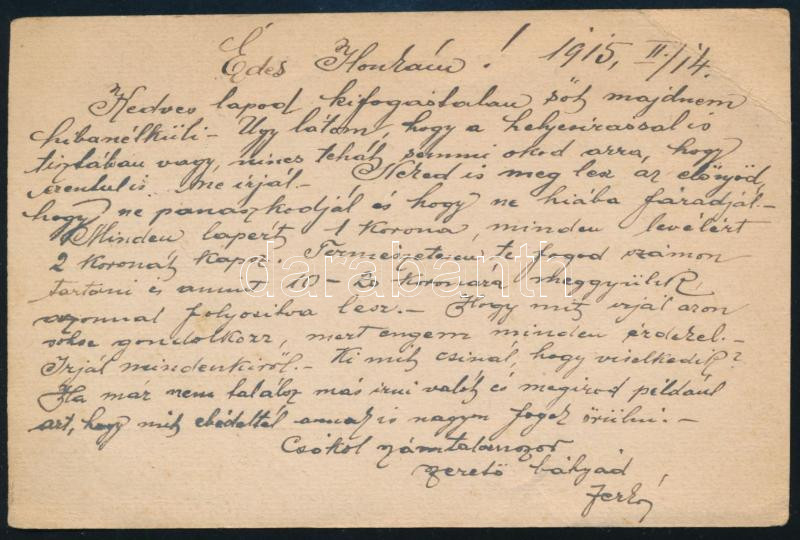 Édes Honkám! 1915, II./14.
Kedves lapod kifogástalan sőt majdnem
hibanélküli - Ugy látom, hogy a helyesirással is
tisztában vagy, nincs tehát semmi okod arra, hogy
ezentul is ne irjál. - Néked is meg lesz az előnyöd,
hogy ne panaszkodjál és hogy ne hiába fáradjál. -
Minden lapért 1 korona, minden levélért
2 koronát kapsz. Természetesen te fogod számon
tartani és amint 10-20 koronára meggyülik,
azonnal folyositva lesz. - Hogy mit irjál azon
sohse gondolkozz, mert engem minden érdekel. -
Irjál mindenkiről. - Ki mit csinál, hogy viselkedik?
Ha már nem találsz más irni valót és megirod például
azt, hogy mit ebédeltél annak is nagyon fogok örülni. -
Csókol számtalanszor
szerető bátyád
darabanth.com